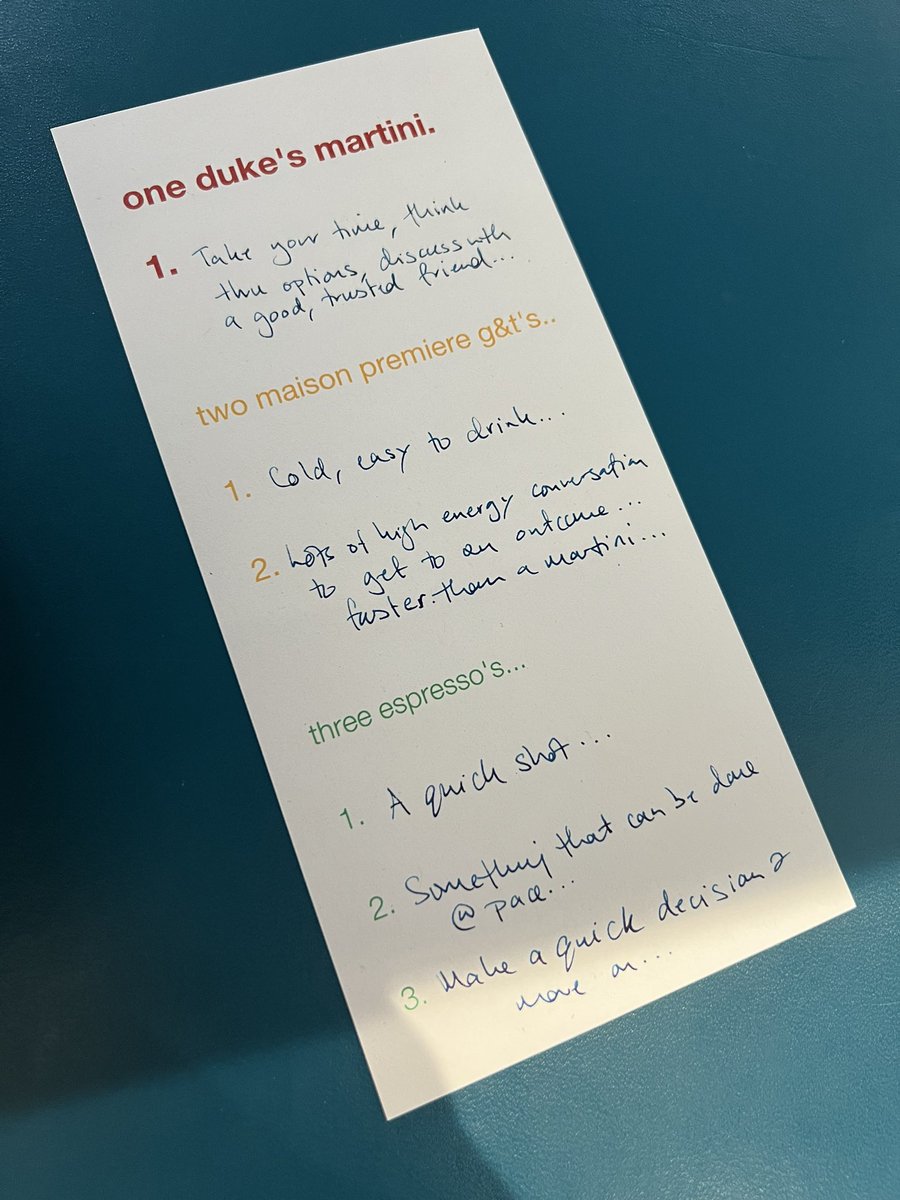 one duke's martini.
1. Take your time, think
thru options, discuss with
a good, trusted friend...
two maison premiere g&t's..
1. Cold, easy to drink...
2. Lots of high energy conversation
to get to an outcome...
faster than a martini...
three espresso's...
1. A quick shot...
2. Something that can be done
@ pace...
3. Make a quick decision &
move on...